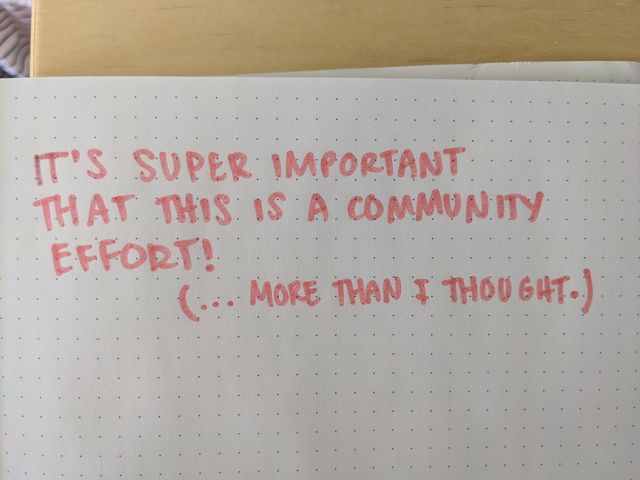 IT'S SUPER IMPORTANT
THAT THIS IS A COMMUNITY
EFFORT!
(... MORE THAN I THOUGHT.)